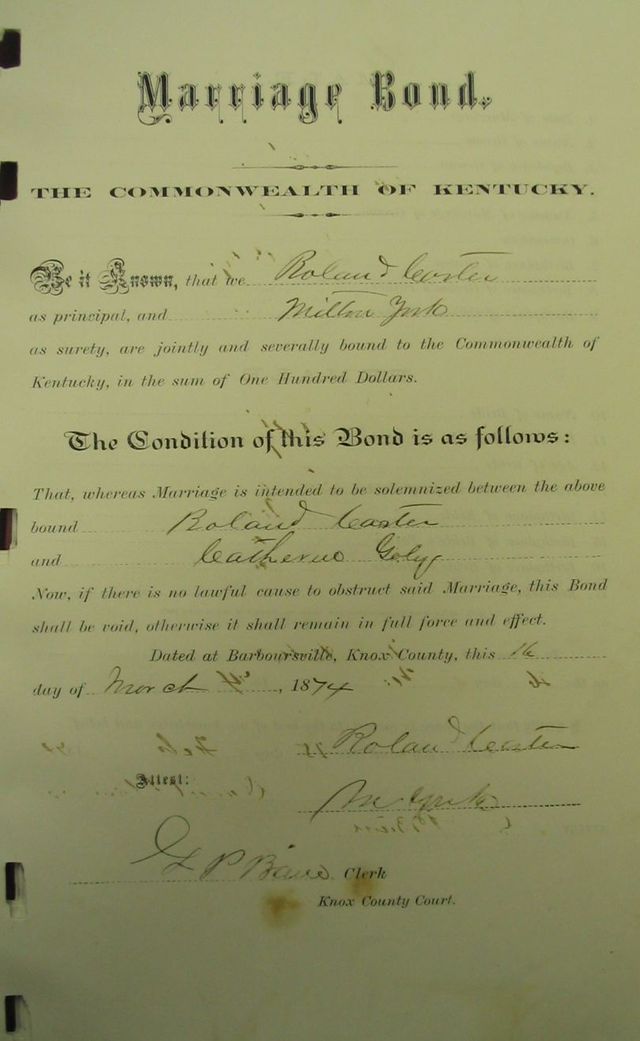 Marriage Bond.
THE COMMONWEALTH OF KENTUCKY.
Be it Known, that we Roland Carter
as principal, and Milton York
as surety, are jointly and severally bound to the Commonwealth of
Kentucky, in the sum of One Hundred Dollars.
The Condition of this Bond is as follows:
That, whereas Marriage is intended to be solemnized between the above
bound Roland Carter
and Catherine
Now, if there is no lawful cause to obstruct said Marriage, this Bond
shall be void, otherwise it shall remain in full force and effect.
Dated at Barboursville, Knox County, this 16
day of March, 1874
Roland Carter
Attest:
M York
Clerk
Knox County Court.